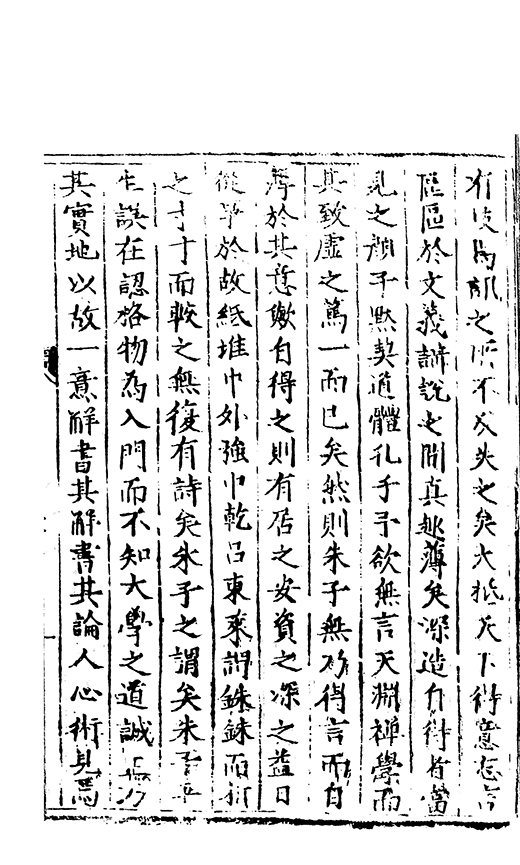 有後為訓之所不及失之矣大抵天下得意忘言
區區於文義辭說之間真趣薄矣深造自得者當
見之顏子默契道體孔子予欲無言天淵禪學而
其致虛之篤一而已矣然則朱子無孙得言而自
得於其意歟自得之則有居之安資之深之益日
從事於故紙堆中外強中乾呂東萊謂銖銖而稱
之寸寸而較之無復有詩矣朱子之謂矣朱子平
生誤在認格物為入門而不知大學之道誠乃
其實地以故一意解書其解書其論人心術見焉